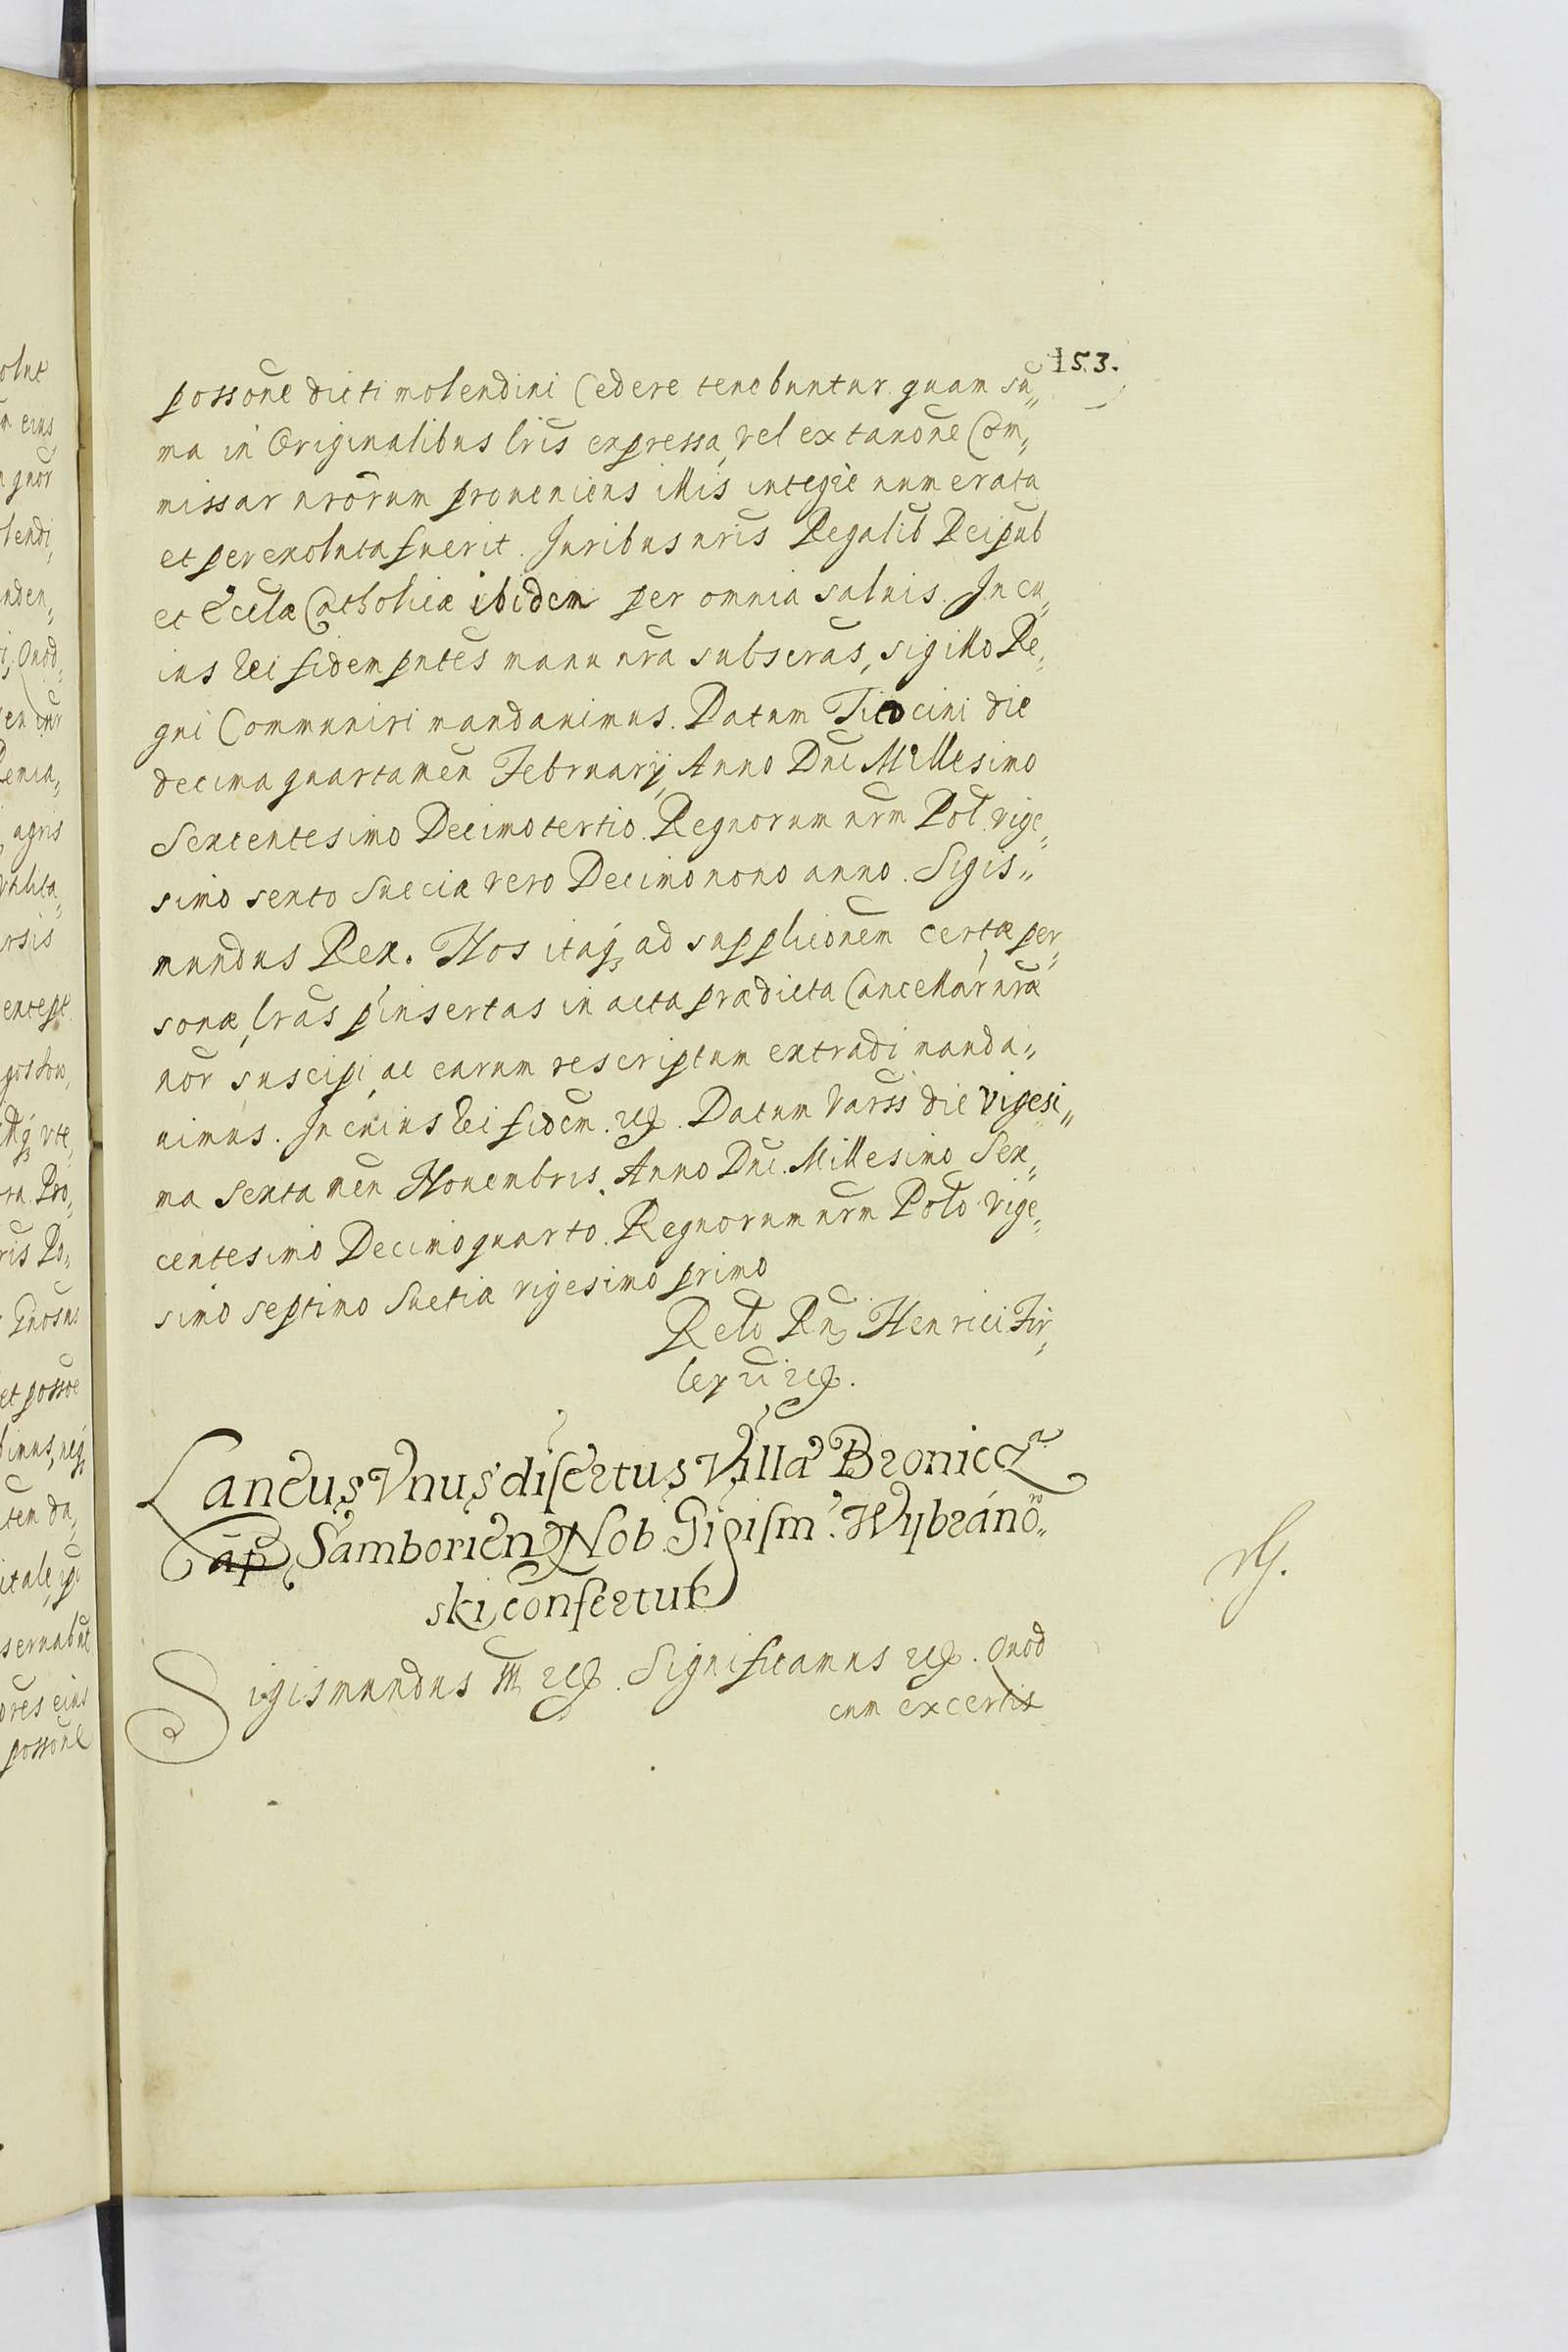 153.
possone dicti molendini Cedere tenebuntur quam su„
ma in Originalibus lris expressa, vel ex taxaone Com„
missar nrorum proueniens illis integre numerata
et perexoluta fuerit. Juribus nris Regalib Reipub
et Eccla Catholicæ ibidem per omnia saluis. In cu„
ius Rei fidem pntes manu nra subscras, sigillo Re„
gni Communiri mandauimus. Datum Ticocini die
decima quarta men February, Anno Dni Millesimo
Sexcentesimo Decimotertio. Regnorum nrm Pol. vige„
simo sexto Sueciæ vero Decimonono anno. Sigis„
mundus Rex. Nos itaq ad supplicionem certæ per„
sonæ, lras p'insertas in acta prædicta Cancellar nræ
nor suscipi, ac earum rescriptum extradi manda„
uimus. In cuius Rei fidem. etc. Datum Varss die vigesi„
ma Sexta men Nouembris. Anno Dni. Millesimo Sex„
centesimo Decimoquarto. Regnorum nrm Polo vige„
simo septimo Suetiæ vigesimo primo
Relo Rn Henrici Fir„
ley etc.
Laneus Vnus desertus Villa Bronicza
Cap Samborien Nob. Gigism. Wybrano„
ski confertur
Sigismundus III etc. Significamus etc. Quod
cum ex certis
olut
m eius
quor
olendi„
nden„
Quod
agris
rsis
vte,
Pro„
Po„
et possoe
da„
itale,
seruabnt
ores eius
possone